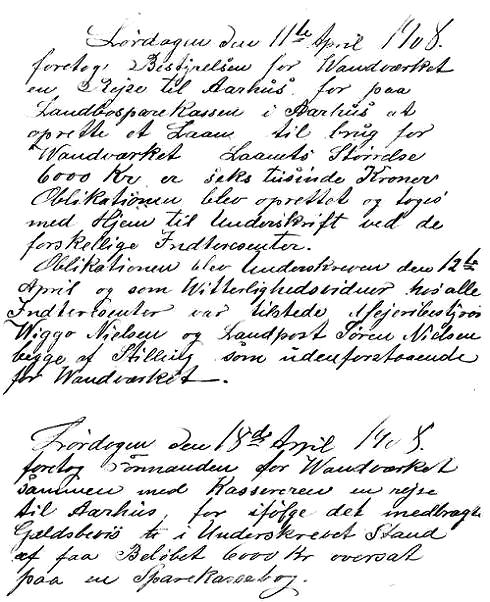 Lørdagen den 11te April 1908.
foretog Bestyrelsen for Wandværket
en Rejse til Aarhus for paa
Landbosparekassen i Aarhus at
oprette et Laan til brug for
Wandværket Laanets Størrelse
6000 Kr er seks tusinde Kroner
Oblikationen blev oprettet og toges
med Hjem til Underskrift ved de
forskellige Indteresenter.
Oblikationen blev Underskreven den 12te
April og som Witterlighedsvidner hos alle
Indteresenter var tilstede Mejeribestyrer
Wiggo Nielsen og Landpost Søren Nielsen
begge af Stilling som udenforstaaende
for Wandværket.
Lørdagen den 18de April 1908.
foretog Formanden for Wandværket
sammen med Kassereren en rejse
til Aarhus, for ifølge det medbragte
Gældsbevis i Underskrevet Stand
at faa Beløbet 6000 Kr oversat
paa en Sparekassebog.